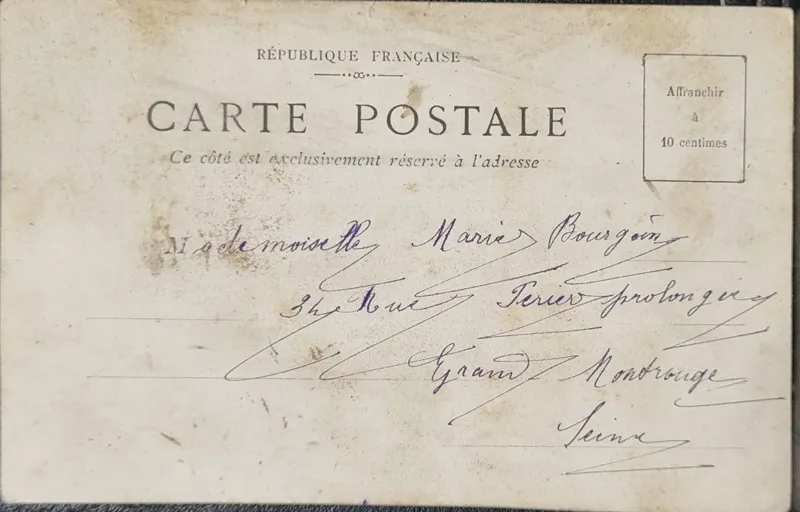 RÉPUBLIQUE FRANÇAISE
CARTE POSTALE
Ce côté est exclusivement réservé à l'adresse
Affranchir
à
10 centimes
Mademoiselle Marie Bourgoin
34 Rue Perier prolongée
Grand Montrouge
Seine